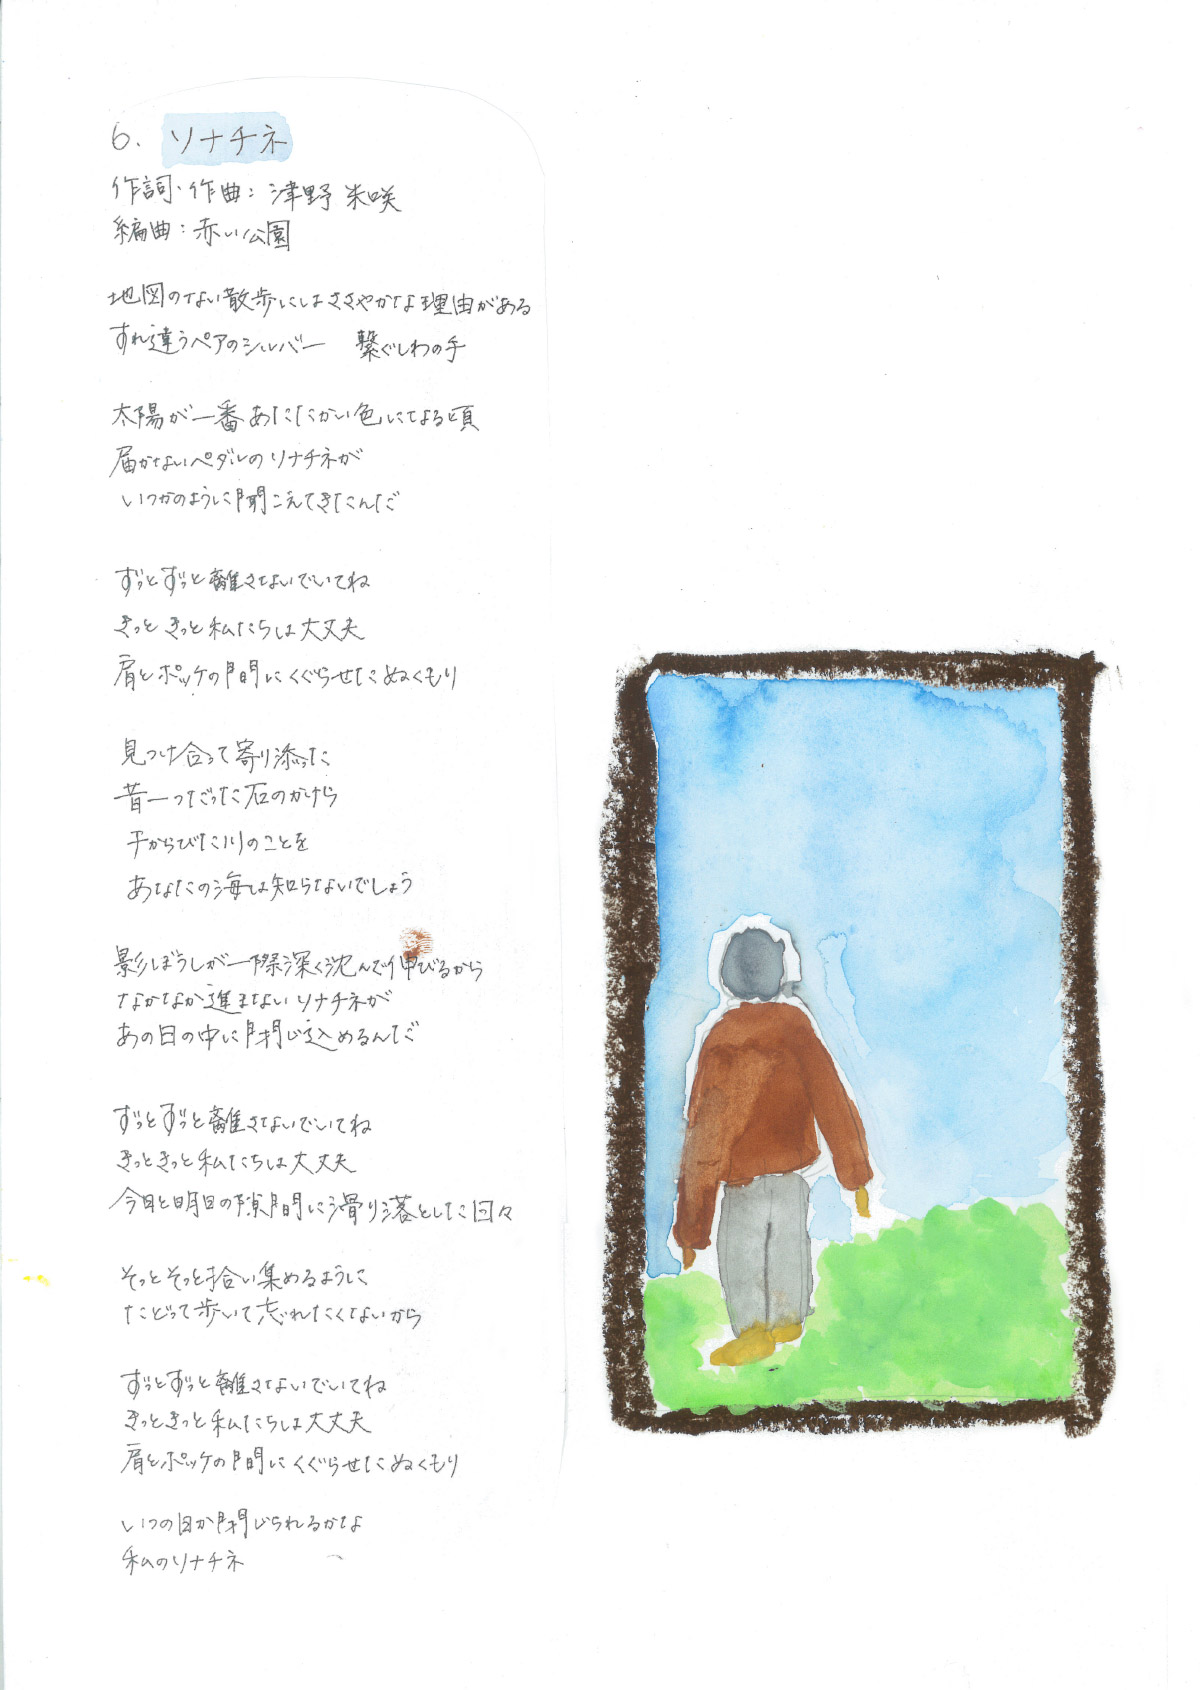 6. ソナチネ
作詞・作曲：津野 米咲
編曲：赤い公園
地図のない散歩にはささやかな理由がある
すれ違うペアのシルバー 繋ぐしわの手
太陽が一番あたたかい色になる頃
届かないペダルのソナチネが
いつかのように聞こえてきたんだ
ずっとずっと離さないでいてね
きっと きっと私たちは大丈夫
肩とポッケの間にくぐらせたぬくもり
見つけ合って寄り添った
昔一つだった石のかけら
干からびた川のことを
あなたの海は知らないでしょう
影ぼうしが一際深く沈んで伸びるから
なかなか進まないソナチネが
あの日の中に閉じ込めるんだ
ずっとずっと離さないでいてね
きっときっと私たちは大丈夫
今日と明日の隙間に滑り落とした日々
そっとそっと拾い集めるように
たどって歩いて忘れたくないから
ずっとずっと離さないでいてね
きっときっと私たちは大丈夫
肩とポッケの間にくぐらせたぬくもり
いつの日か閉じられるかな
私のソナチネ